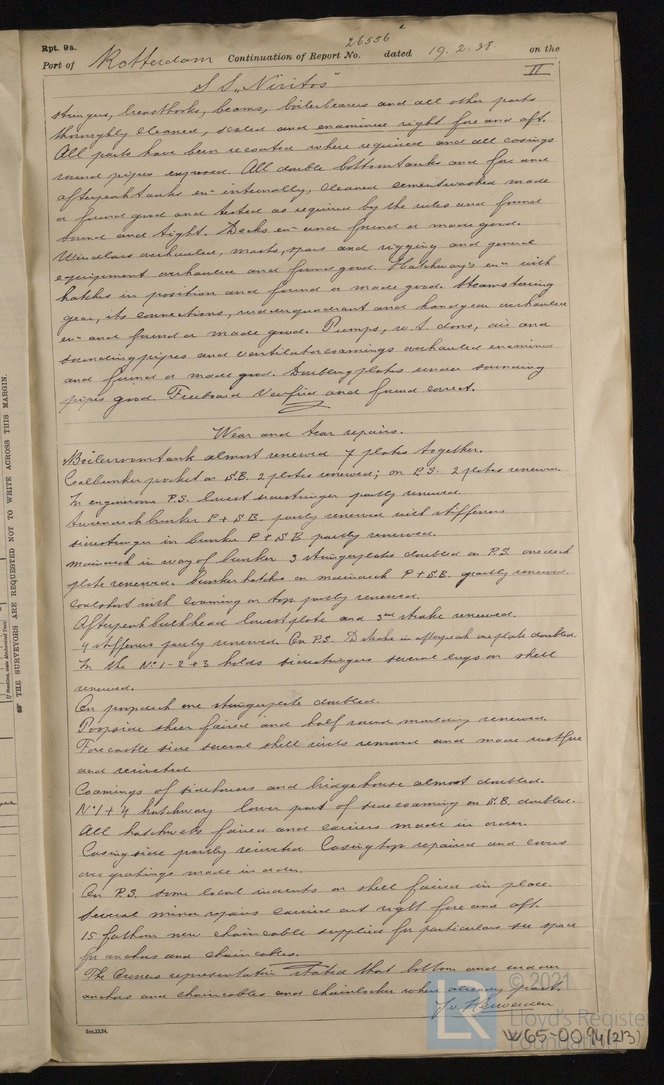 Rpt. 9a.
Port of Rotterdam Continuation of Report No. 26556 dated 19.2.38. on the
II
S S "Niritos"
stringers, breasthooks, beams, boilerbearers and all other parts
thoroughly cleaned, scaled and examined right fore and aft.
All parts have been recoated where required and all casings
round pipes exposed. All double bottomtanks and fore and
afterpeaktanks exn internally, cleaned cementwashed made
or found good and tested as required by the rules and found
sound and tight. Decks exn and found or made good.
Windlass overhauled, masts, spars and rigging and general
equipment overhauled and found good. Hatchway's exn with
hatches in position and found or made good. Steamsteering
gear, its connections, rudderquadrant and handgear overhauled
exn and found or made good. Pumps, w.t. doors, air and
soundingpipes and ventilatorcoamings overhauled examined
and found or made good. Doublingplates under sounding
pipes good. Freeboard Verified and found correct.
Wear and tear repairs.
Boilerroomtank almost renewed 7 plates together.
Coalbunker pocket on S.B. 2 plates renewed; on P.S. 2 plates renewed.
In engineroom P.S. lowest sidestringer partly renewed.
Tweendeckbunker P + S.B. partly renewed with stiffeners
sidestringer in bunker P + S.B. partly renewed.
maindeck in way of bunker 3 stringerplates doubled on P.S. one deck
plate renewed. Bunkerhatches on maindeck P + S.B. partly renewed
coalshoot with coaming on top partly renewed.
Afterpeakbulkhead lowest plate and 3rd strake renewed.
4 stiffeners partly renewed. On P.S. D strake in afterpeak one plate doubled.
In the No 1-2+3 holds sidestringers several lugs on shell
renewed.
On poopdeck one stringerplate doubled.
Poopside sheer faired and half round moulding renewed.
Forecastle side several shell rivets removed and made rustfree
and reriveted.
Coamings of sidehouses and bridgehouse almost doubled.
No 1 + 4 hatchway lower part of sidecoaming on S.B. doubled.
All hatchwebs faired and carriers made in order.
Casing side partly reriveted Casingtop repaired and covers
over gratings made in order.
On P.S. some local indents on shell faired in place.
Several minor repairs carried out right fore and aft.
15 fathom new chaincable supplied for particulars see space
for anchors and chaincables.
The Owners representative stated that bottom and rudder
anchors and chaincables and chainlocker where already passed.
THE SURVEYORS ARE REQUESTED NOT TO WRITE ACROSS THIS MARGIN.
LR
© 2021
Lloyd's Register
Foundation
W65-0094(2/3)